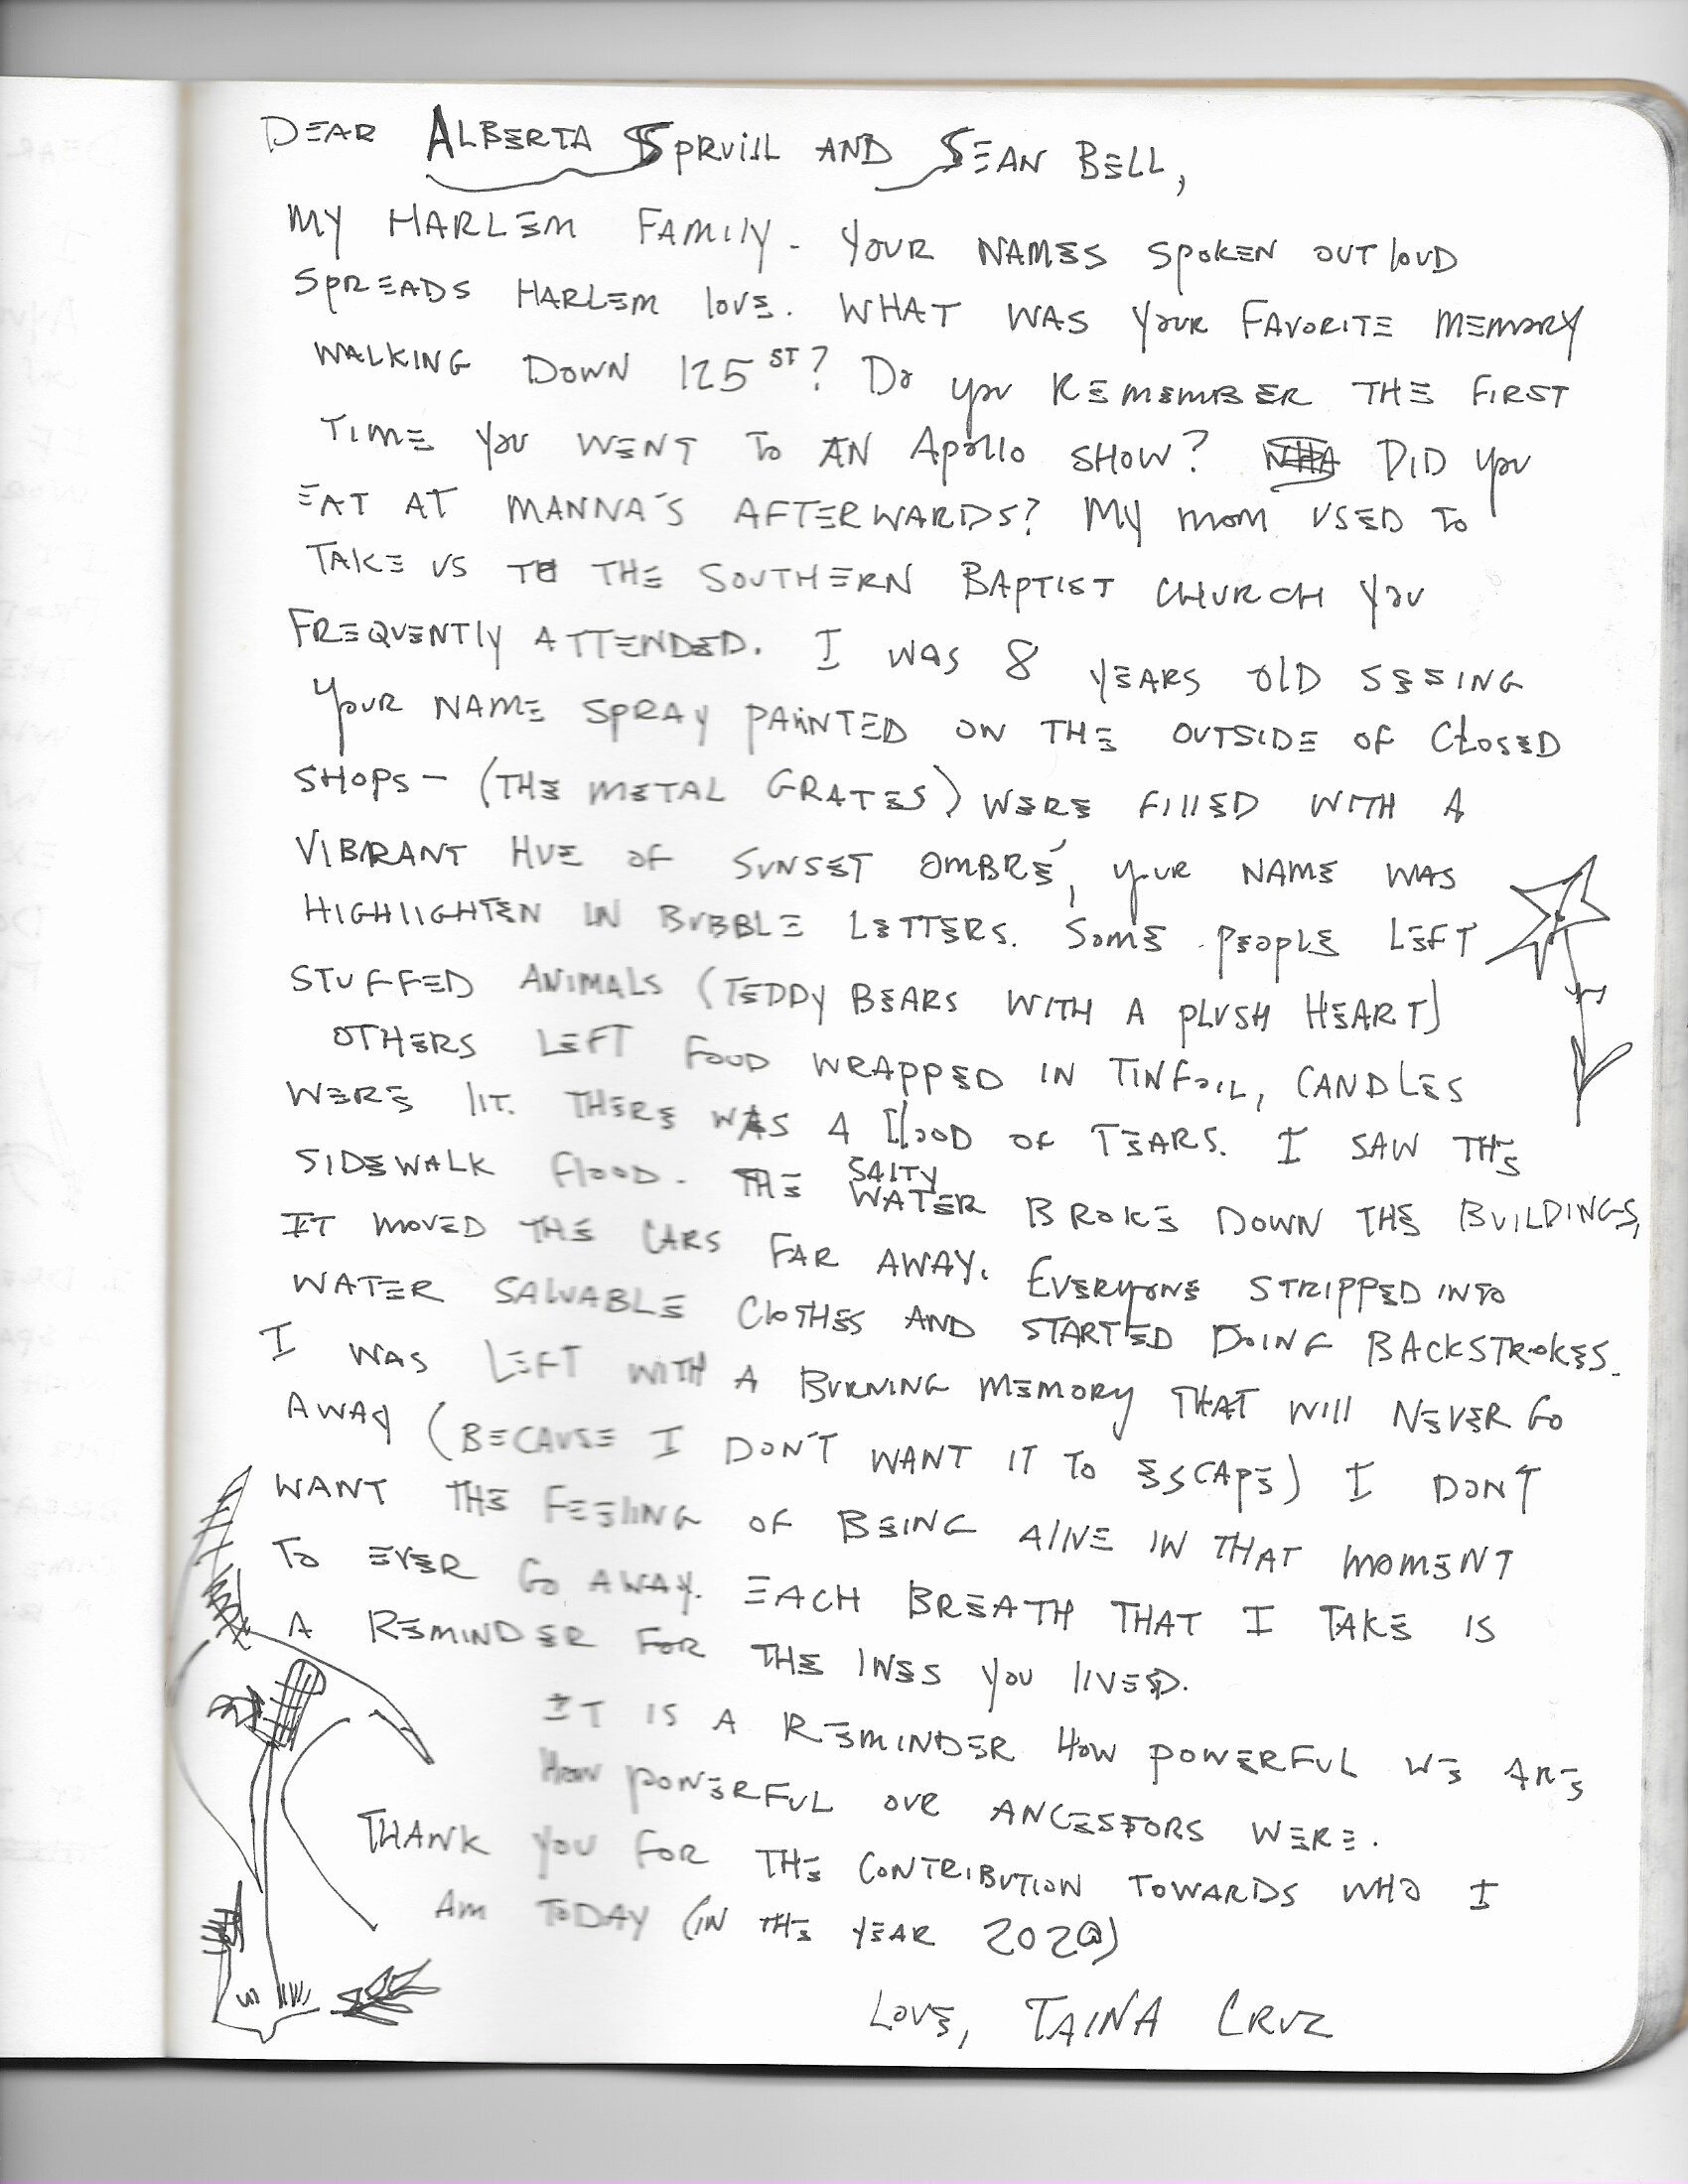 DEAR ALBERTA SPRUILL AND SEAN BELL,
MY HARLEM FAMILY - YOUR NAMES SPOKEN OUT LOUD
SPREADS HARLEM LOVE. WHAT WAS YOUR FAVORITE MEMORY
WALKING DOWN 125 ST? DO YOU REMEMBER THE FIRST
TIME YOU WENT TO AN APOLLO SHOW? DID YOU
EAT AT MANNA'S AFTERWARDS? MY MOM USED TO
TAKE US TO THE SOUTHERN BAPTIST CHURCH YOU
FREQUENTLY ATTENDED. I WAS 8 YEARS OLD SEEING
YOUR NAME SPRAY PAINTED ON THE OUTSIDE OF CLOSED
SHOPS - (THE METAL GRATES) WERE FILLED WITH A
VIBRANT HUE OF SUNSET OMBRÉ, YOUR NAME WAS
HIGHLIGHTEN IN BUBBLE LETTERS. SOME PEOPLE LEFT
STUFFED ANIMALS (TEDDY BEARS WITH A PLUSH HEART)
OTHERS LEFT FOOD WRAPPED IN TINFOIL, CANDLES
WERE LIT. THERE WAS A FLOOD OF TEARS. I SAW THE
SIDEWALK FLOOD. THE SALTY WATER BROKE DOWN THE BUILDINGS,
IT MOVED THE CARS FAR AWAY. EVERYONE STRIPPED INTO
WATER SALVABLE CLOTHES AND STARTED DOING BACKSTROKES.
I WAS LEFT WITH A BURNING MEMORY THAT WILL NEVER GO
AWAY (BECAUSE I DON'T WANT IT TO ESCAPE) I DON'T
WANT THE FEELING OF BEING ALIVE IN THAT MOMENT
TO EVER GO AWAY. EACH BREATH THAT I TAKE IS
A REMINDER FOR THE LIVES YOU LIVED.
IT IS A REMINDER HOW POWERFUL WE ARE
HOW POWERFUL OUR ANCESTORS WERE.
THANK YOU FOR THE CONTRIBUTION TOWARDS WHO I
AM TODAY (IN THE YEAR 2020)
LOVE, TAINA CRUZ